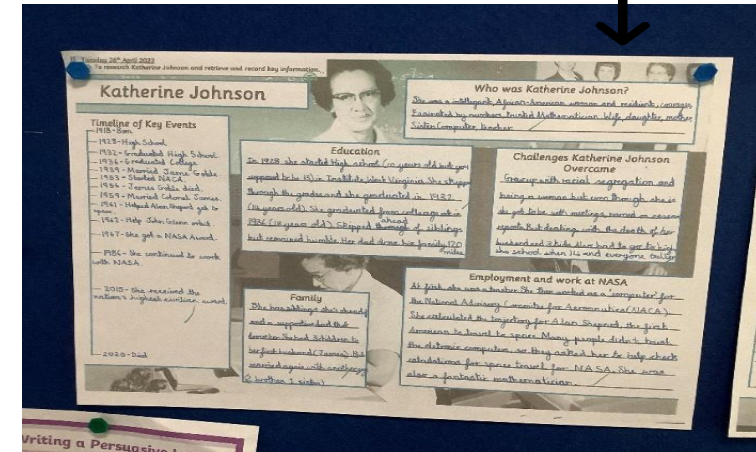 Tuesday 26th April 2022
To research Katherine Johnson and retrieve and record key information.
Katherine Johnson
Timeline of Key Events
1918-Born
1928-High School
1932-Graduated High School
1936-Graduated College
1939-Married James Goble
1953-Started NACA
1956-James Goble died.
1959-Married Colonel James.
1961-Helped Alan Shepard get to space.
1962-Help John Glenn orbit
1967-She got a NASA Award.
1986-She continued to work
with NASA.
2015-She received the
nation's highest civilian award.
2020-Died
Who was Katherine Johnson?
She was a intelligent, African-American woman and resilient, courages
Fasinated by numbers, trusted Mathematician, Wife, daughter, mother
Sister, Computer, teacher
Education
In 1928 she started High school (10 years old but you
supposed to be 13) in Institute, West Virginia. She skipped
through the grades and she graduated in 1932
(14 years old). She graduated from college at in
1936 (18 years old). Skipped ahead of siblings
but remained humble. Her dad drove his family 120
miles
Challenges Katherine Johnson
Overcame
Grew up with racial segregation and
being a woman but even though she is
she got to be with meetings, named on research
reports. But dealing with the death of her
husband and 3 kids. Also had to go to high
school when 14 and everyone
Family
She has siblings she's ahead of
and a supportive dad that
She had 3 children to
her first husband (James). But
married again with another
(2 brother 1 sister)
Employment and work at NASA
At first, she was a teacher. She then worked as a 'computer' for
the National Advisory Commitee for Aeronautics (NACA).
She calculated the trajectory for Alan Shepard, the first
American to travel to space. Many people didn't trust
the eletronic computers, so they asked her to help check
calculations for space travel for NASA. She was
also a fantastic mathematician.
Writing a Persuasive